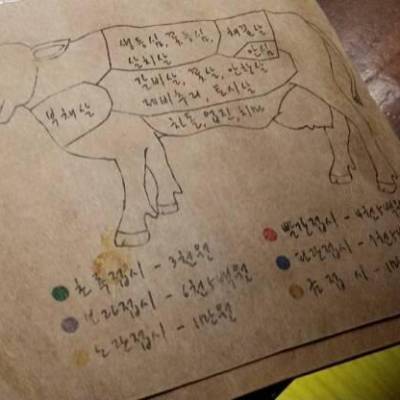 생등심, 꽃등심,
살치살
채끝살
안심
부채살
갈비살, 꽃살, 안창살
제비추리, 토시살
차돌, 업진, 치마
초록접시 - 3천원
보라접시 - 6천5백원
노랑접시 - 1만원
빨강접시 - 4천5백
파랑접시
금접시 - 1만